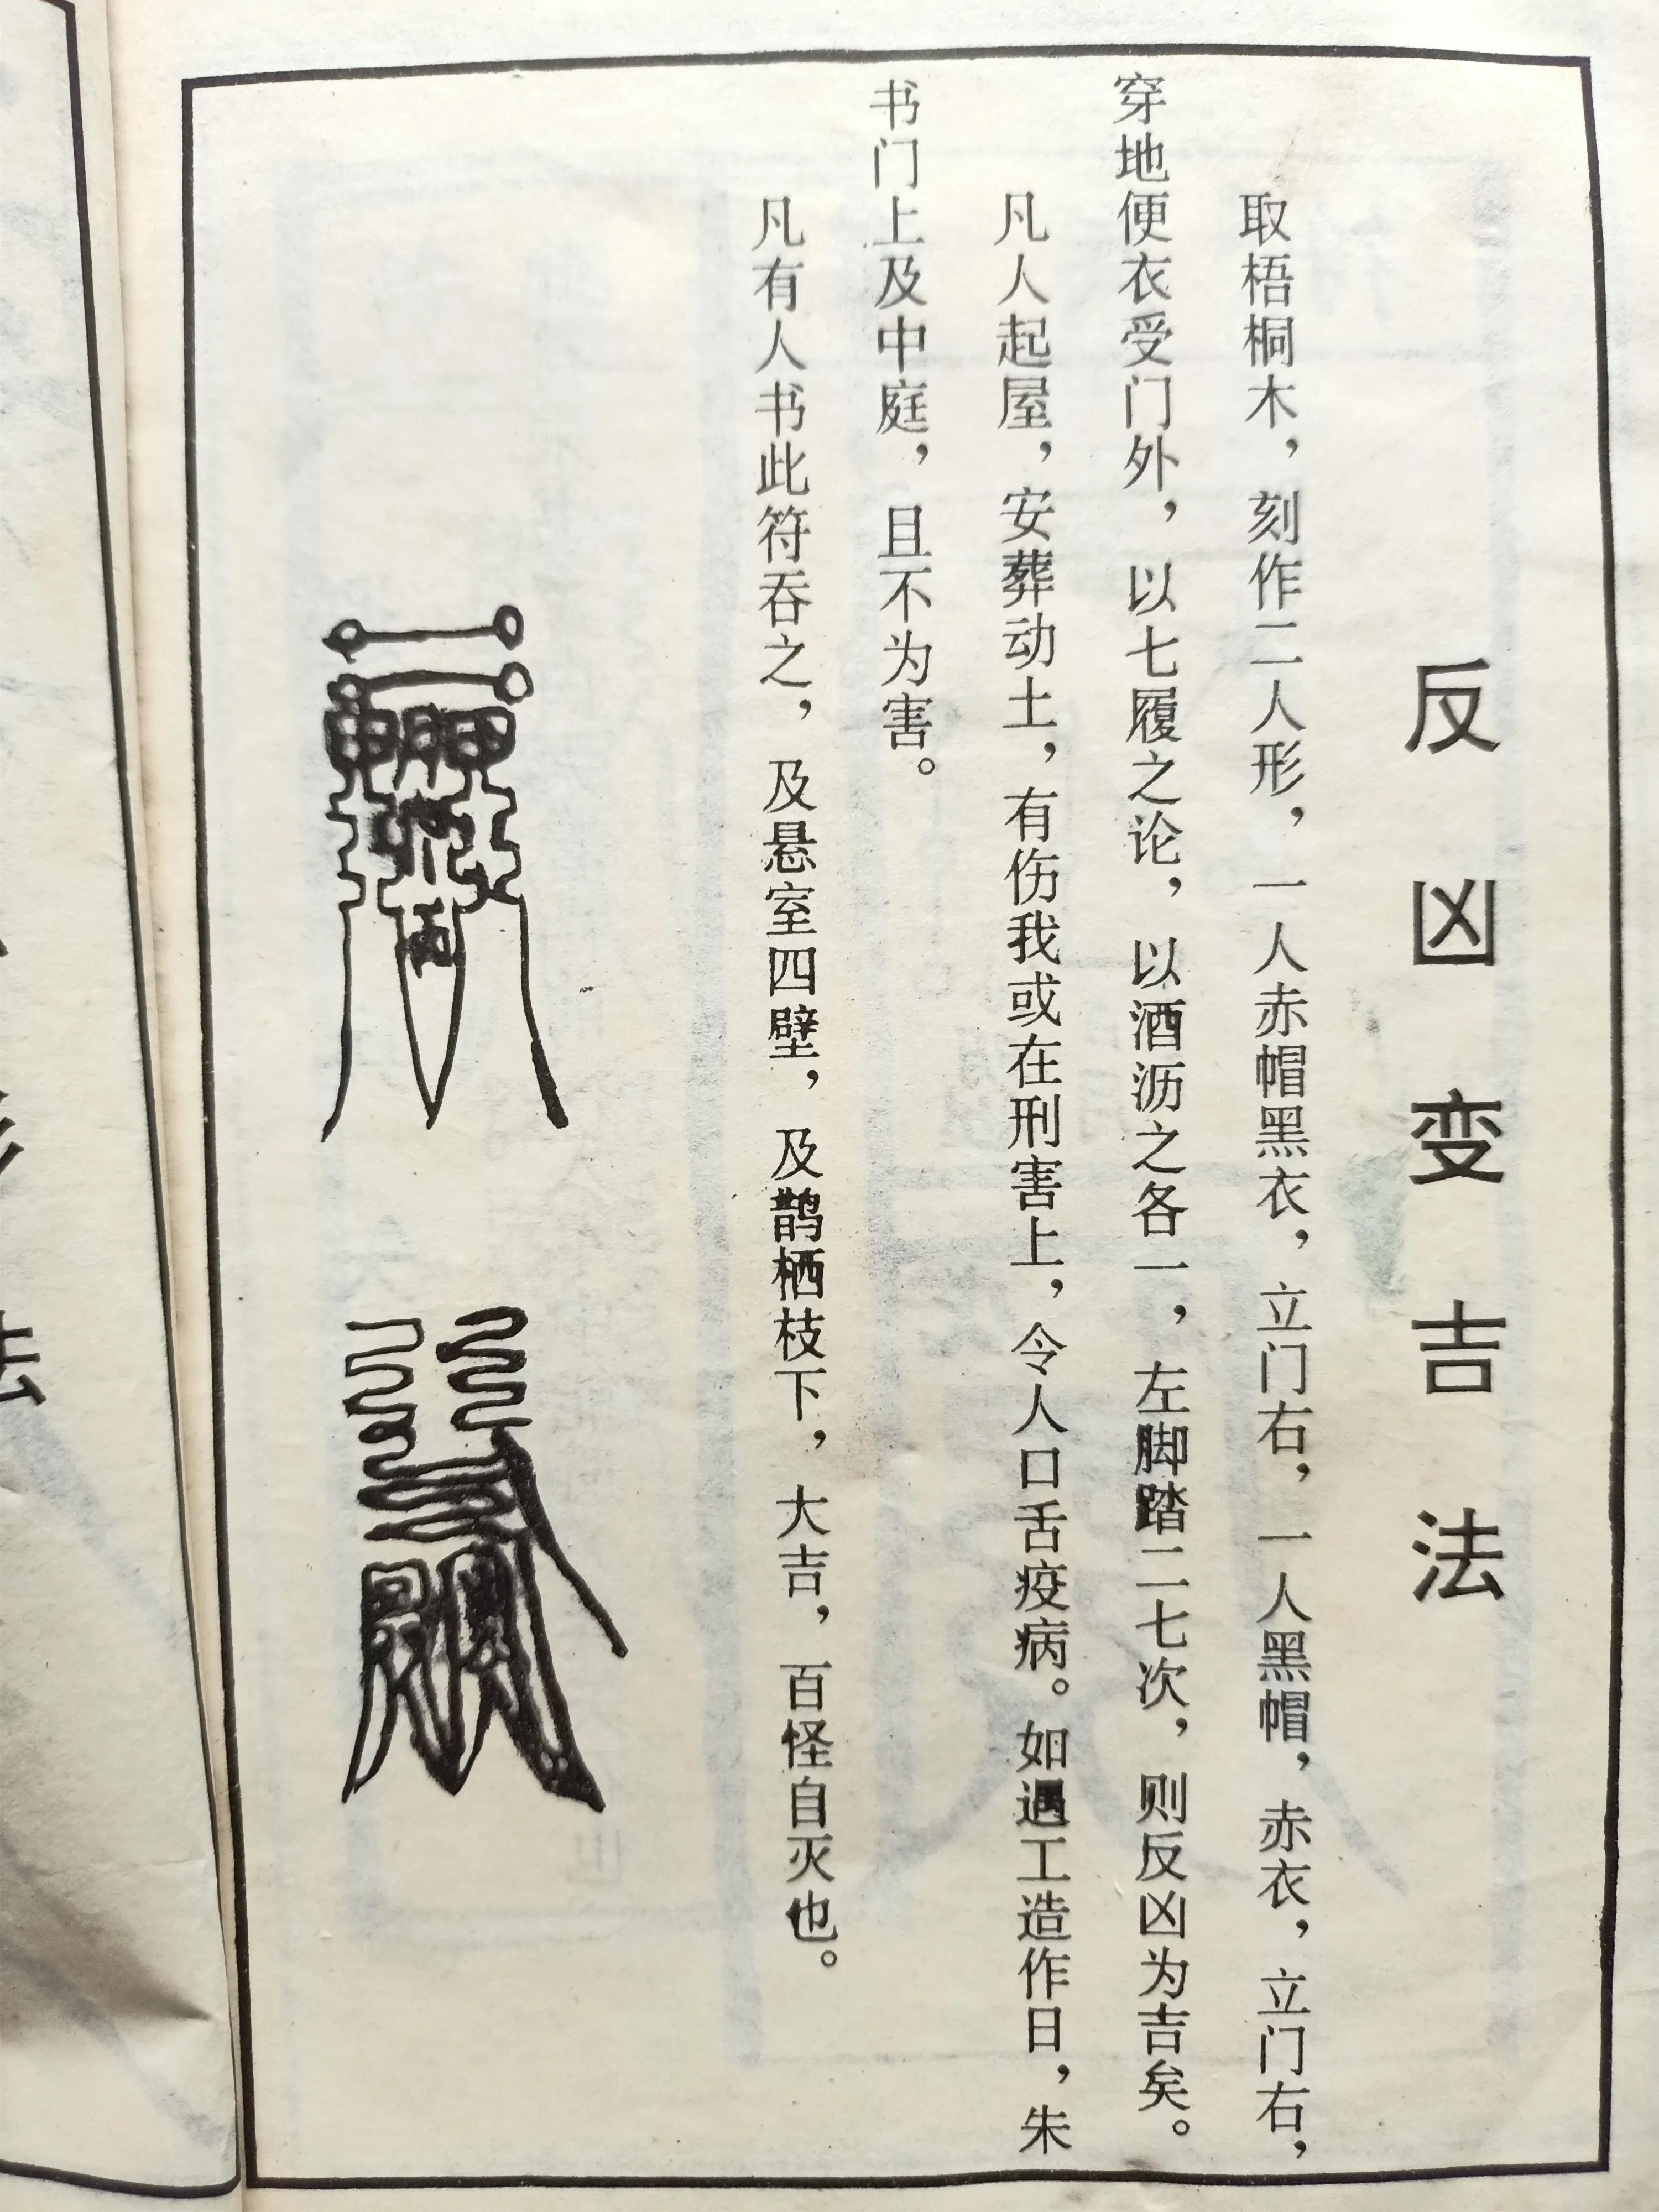 反凶变吉法
取梧桐木，刻作二人形，一人赤帽黑衣，立门右，一人黑帽，赤衣，立门右，
穿地便衣受门外，以七履之论，以酒沥之各一，左脚踏二七次，则反凶为吉矣。
凡人起屋，安葬动土，有伤我或在刑害上，令人口舌疫病。如遇工造作日，朱
书门上及中庭，且不为害。
凡有人书此符吞之，及悬室四壁，及鹊栖枝下，大吉，百怪自灭也。
法